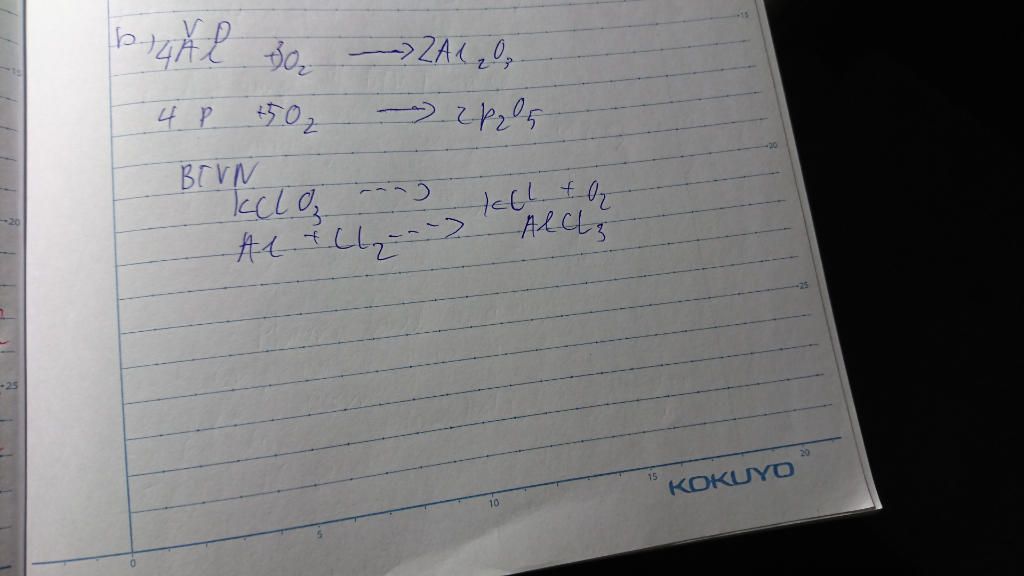 b,) 4Al + 3O₂ → 2Al₂O₃
4 P + 5O₂ → 2P₂O₅
BTVN
KClO₃ ---> KCl + O₂
Al + Cl₂ ---> AlCl₃
KOKUYO
15
20
25
15
20
25
0
5
10
15
20